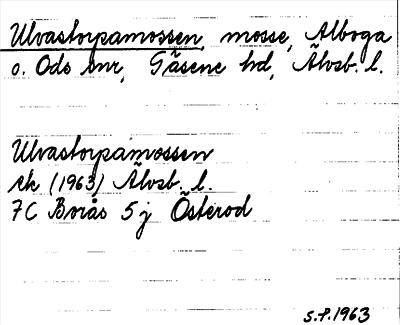 Ulvastorpamossen, mosse, Alboga
o. Ods snr, Gäsene hd, Älvsb. l.
Ulvastorpamossen
ek (1963) Älvsb. l.
7C Borås 5 j Österod
S.P. 1963